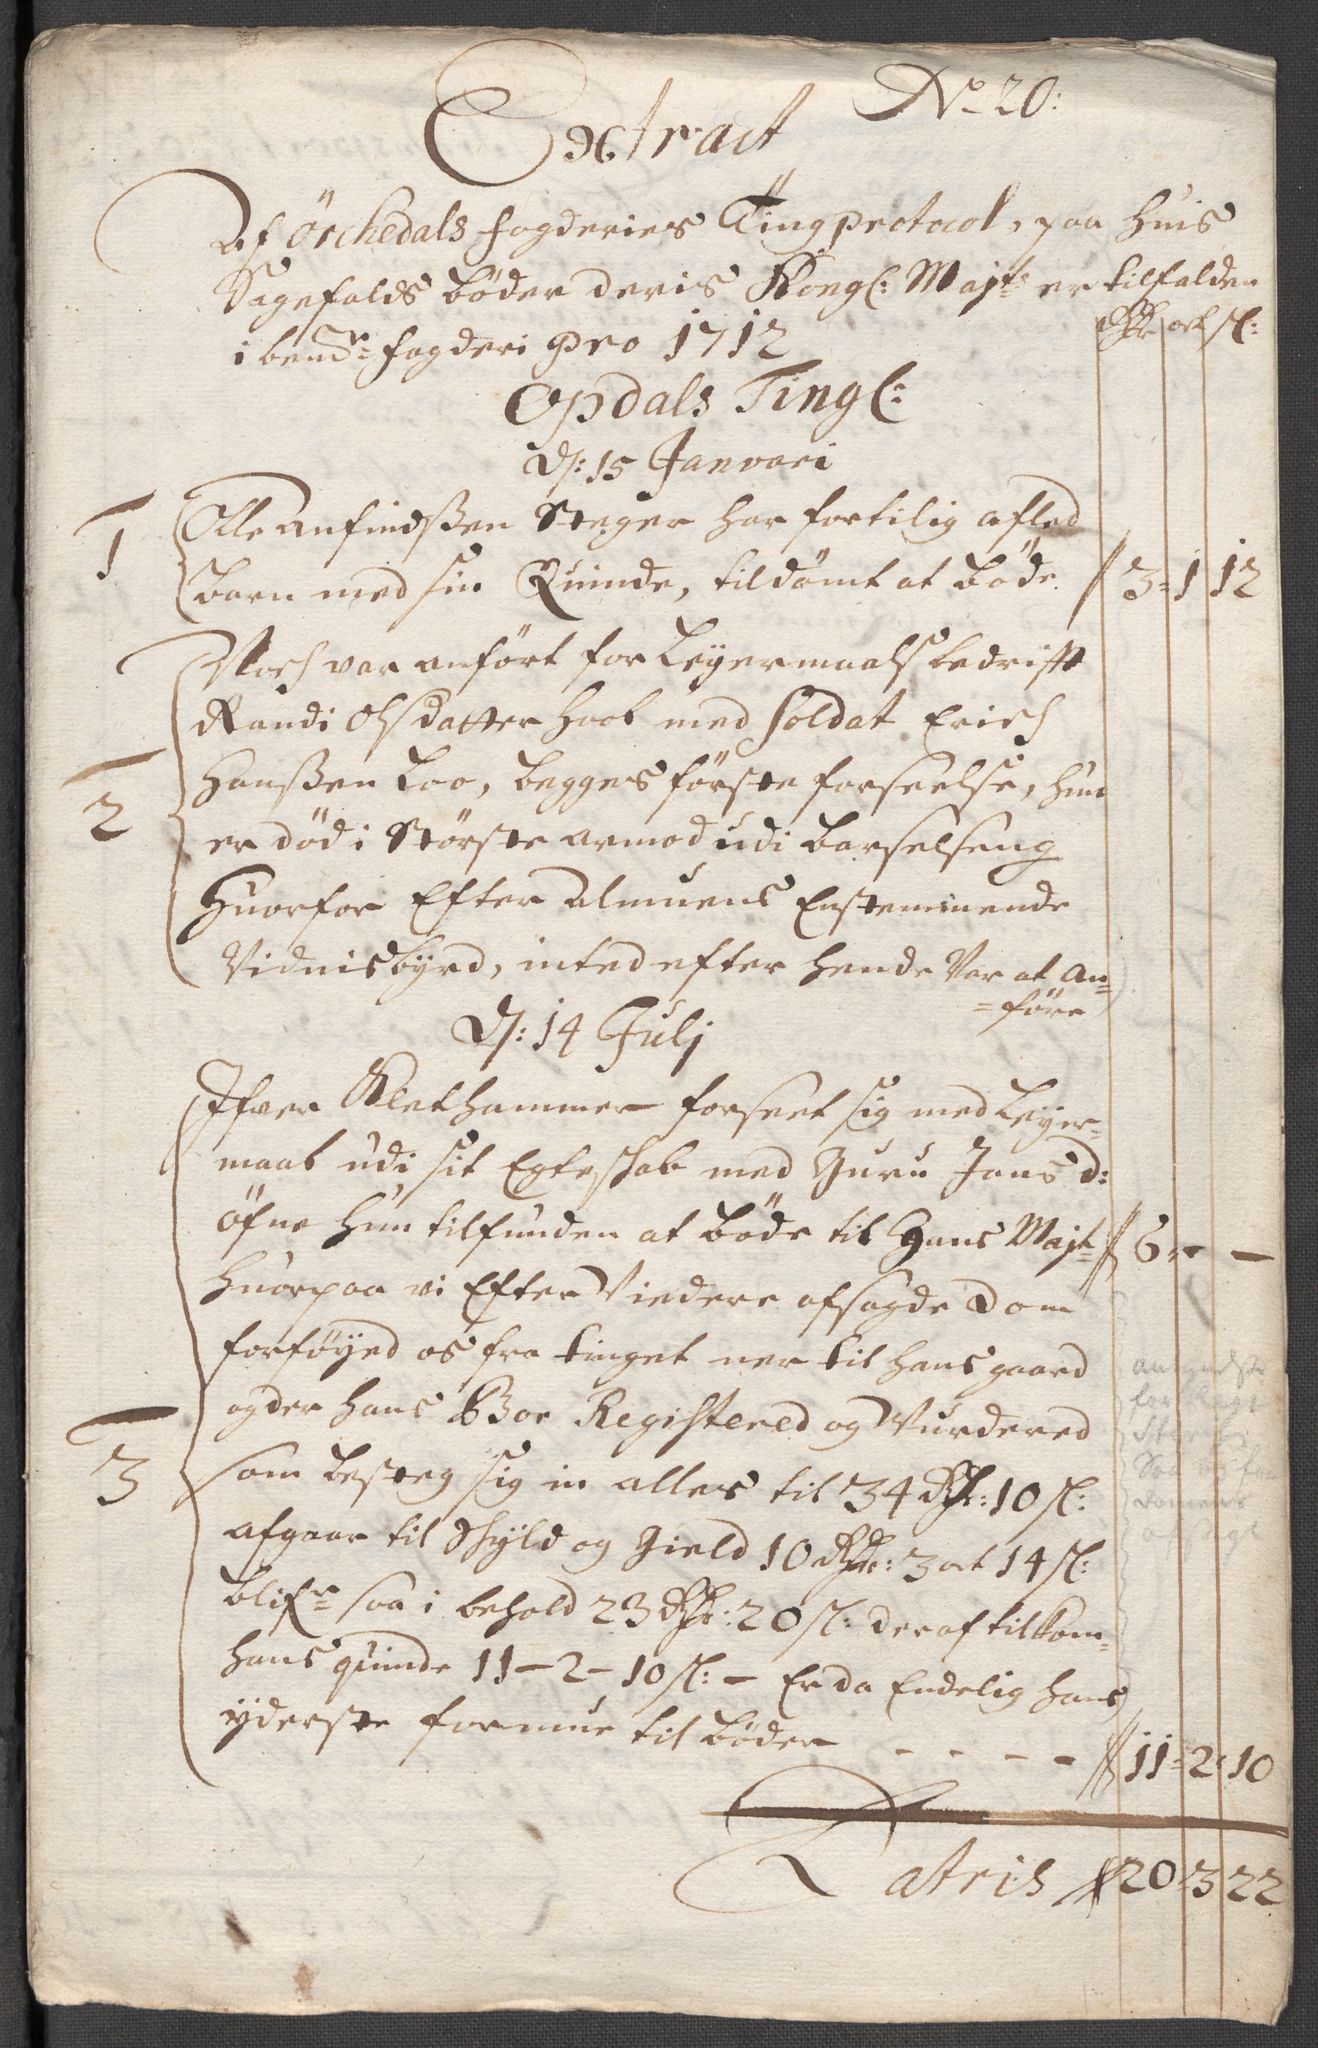 No 20:
Extract
Af Örchedals fogderies Tingprotocol, paa huis
Sagefalds böder deris Kongl: Majt: er tilfalden
i bemte fogderi pro 1712
Rdr ort sl:
Opdals Tingl:
D: 15 Janvari
1
Olle Anfindssen Steger har fortilig afled
barn med sin Quinde, tildömt at böde // 3 - 1 12
2
Noch var anfört for Leyermaals bedrift
Randi Olsdatter Hoel med Soldat Erich
Hanssen Loo, begges förste forseelse, hun
er död i störste armod udi barselseng
huorfor Efter Almuens Enstemmende
Vidnisbyrd, inted efter hende Var at An=
=före
D: 14 Julj
3
Ifver Klethammer forseet sig med Leyer=
maal udi sit Egteschab med Guru Jons d:
öfne hun tilfunden at böde til Hans Majt: // 6 - - -
huorpaa vi Efter Viedere afsagde Dom
forföyed os fra tinget ner til hans gaard
og der hans Boe Registered og Vurdered
som besteg sig in alles til 34 Rdr: 10 sl:
afgaar til Schyld og Gield 10 Rdr: 3 ort 14 sl:
blifr saa i behold 23 Rdr: 20 sl: deraf tilkom=
hans quinde 11 - 2 - 10 sl: - Er da Endelig hans
yderste formue til böder - - - - // 11 - 2 - 10
Latris // 20 - 3 22